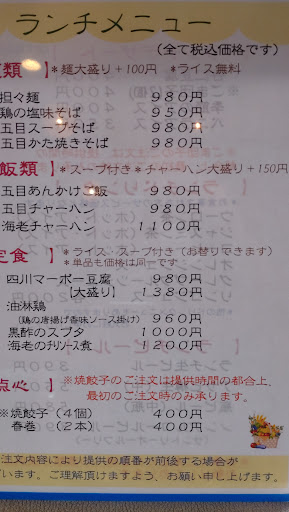 ランチメニュー
(全て税込価格です)
類 】 *麺大盛り+100円 *ライス無料
担々麺 980円
鶏の塩味そば 950円
五目スープそば 980円
五目かた焼きそば 980円
飯類 】 *スープ付き*チャーハン大盛り+150円
五目あんかけご飯 980円
五目チャーハン 980円
海老チャーハン 1100円
定食 】 *ライス スープ付き(お替りできます)
*単品も価格は同一です
四川マーボー豆腐 980円
【大盛り】 1380円
油淋鶏
(鶏の唐揚げ香味ソース掛け) 960円
黒酢のスブタ 1000円
海老のチリソース煮 1200円
点心 】 ※焼餃子のご注文は提供時間の都合上、
最初のご注文時のみ承ります。
※焼餃子(4個) 400円
春巻(2本) 400円
注文内容により提供の順番が前後する場合が
います。ご理解頂けますよう、お願い申し上げます。